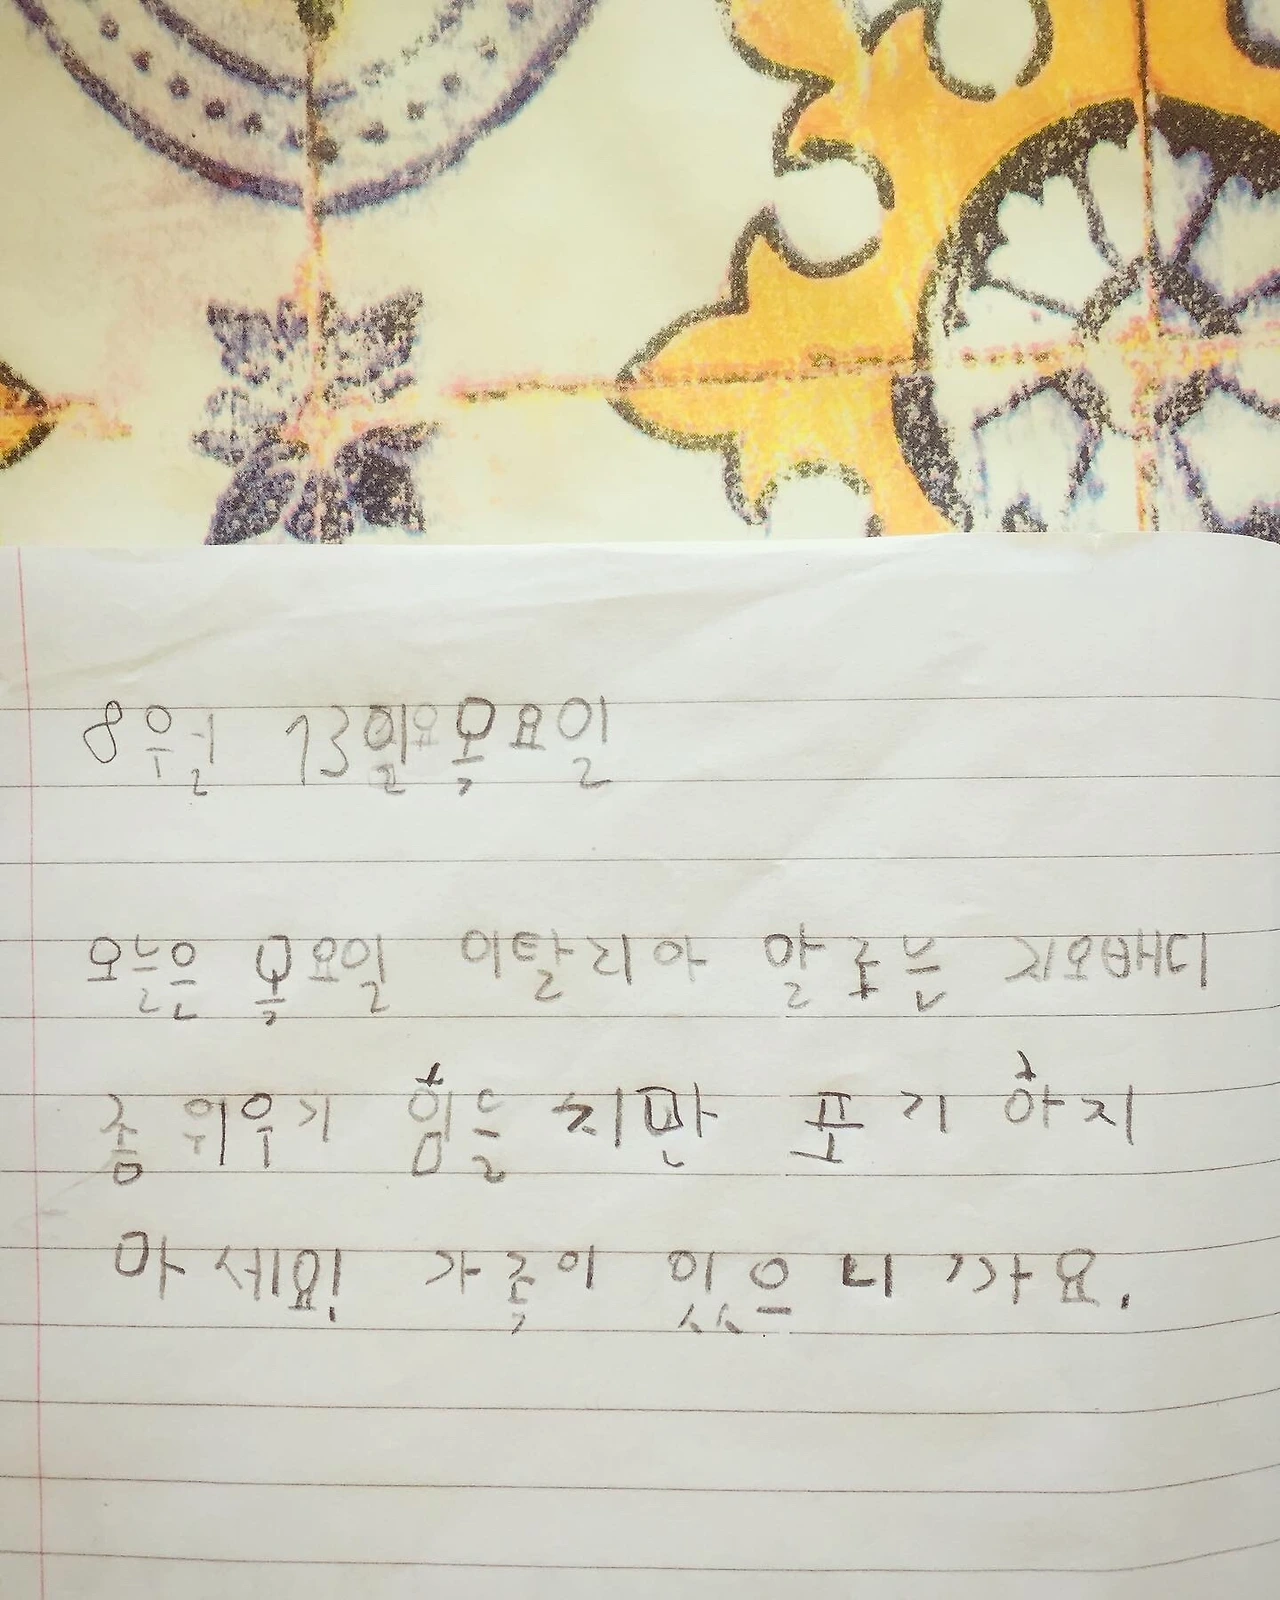 8월 13일 목요일
오늘은 목요일 이탈리아 말로는 지오배디
좀 위우기 힘을 지만 포기 하지
마세요! 가족이 있으니까요.